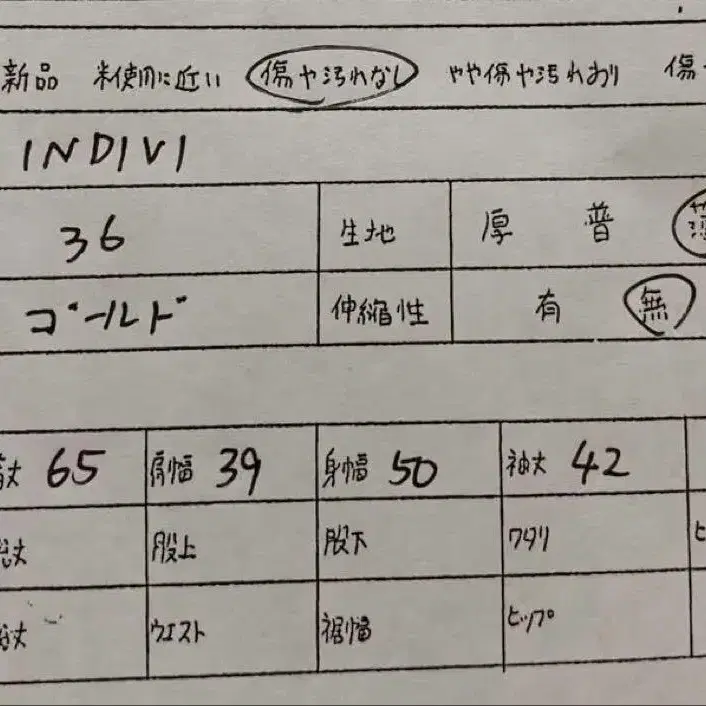 新品 未使用に近い 傷や汚れなし やや傷や汚れあり 傷
INDIVI
36 生地 厚 普 薄
ゴールド 伸縮性 有 無
丈 65 肩幅 39 身幅 50 袖丈 42
総丈 股上 股下 ワタリ ヒ
丈 ウエスト 裾幅 ヒップ